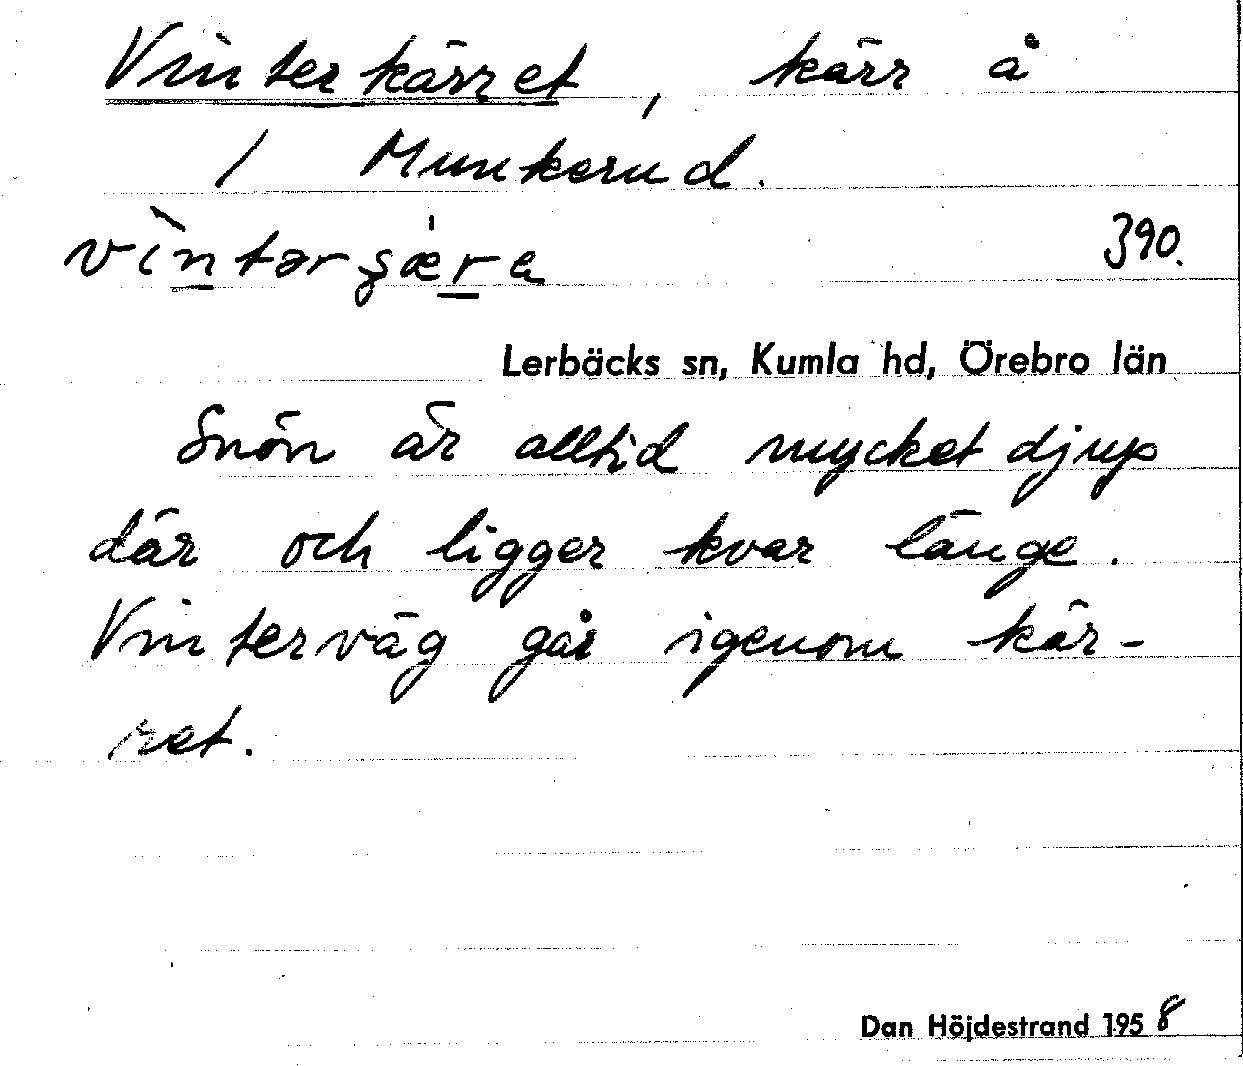 Vinterkärret, kärr å
/ Munkerud.
vìntərʂæ̍ra
390.
Lerbäcks sn, Kumla hd, Örebro län
Snön är alltid mycket djup
där och ligger kvar länge.
Vinterväg går igenom kär-
ret.
Dan Höjdestrand 1958